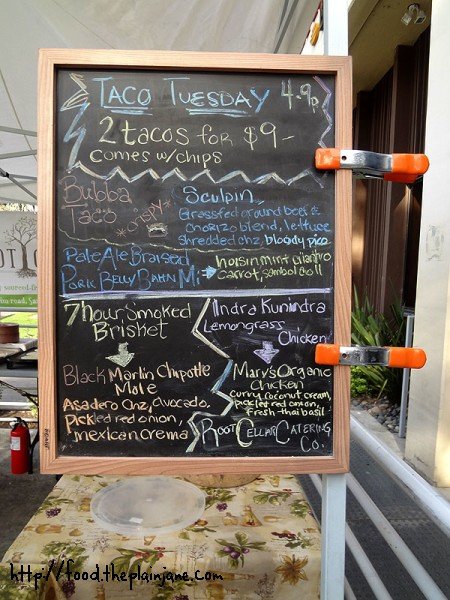 Taco Tuesday 4-9p
2 tacos for $9-
comes w/chips
Bubba
Taco
Sculpin
Grassfed ground beef &
chorizo blend, lettuce
shredded chz, bloody pico
Pale Ale Braised
Pork Belly Bahn Mi
hoisin mint cilantro
carrot, sambol aioli
7 hour Smoked
Brisket
Black Marlin Chipotle
Mole
Asadero Chz, Avocado,
Pickled red onion,
mexican crema
Indra Kunindra
Lemongrass
Chicken
Mary's Organic
Chicken
curry coconut cream,
pickled red onion,
fresh thai basil
Root Cellar Catering
Co.
http://food.theplainjane.com